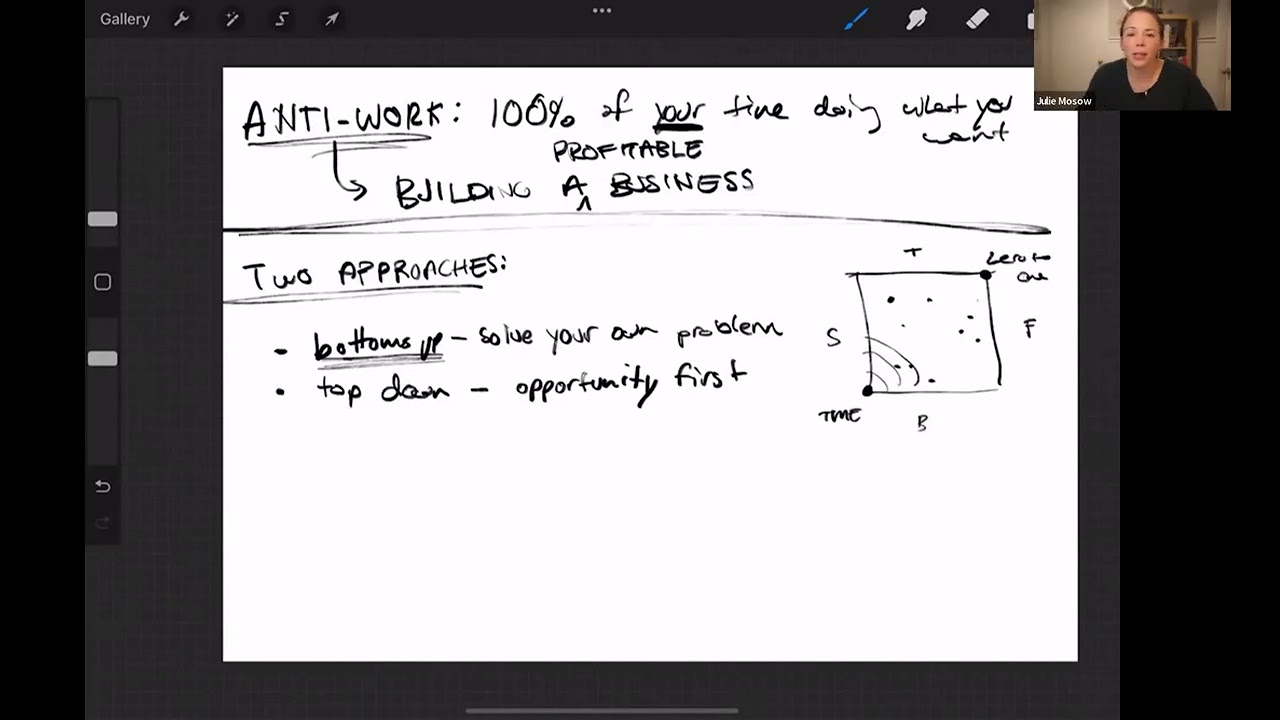 Gallery
Julie Mosow
ANTI-WORK: 100% of your time doing what you want
PROFITABLE
BUILDING A BUSINESS
TWO APPROACHES:
- bottoms up - solve your own problem
• top down - opportunity first
T
zero to one
S
F
TIME
B